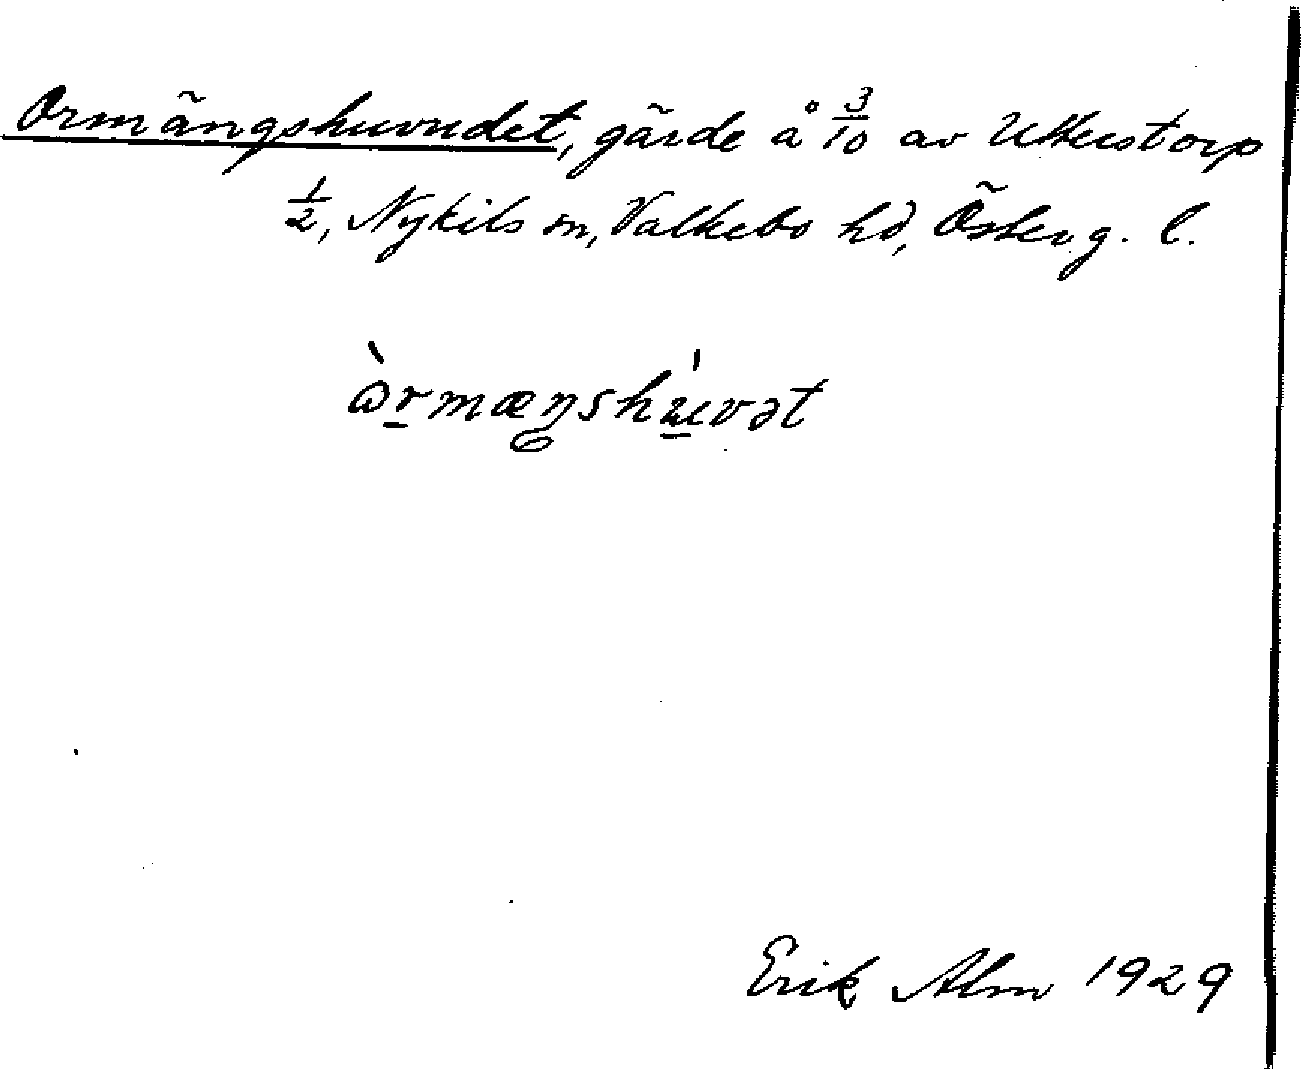 Ormängshuvudet, gärde å 3/10 av Utterstorp
1/2, Nykils sn, Valkebo hd, Österg. l.
ὼrmæŋshu̠̇vət
Erik Alm 1929